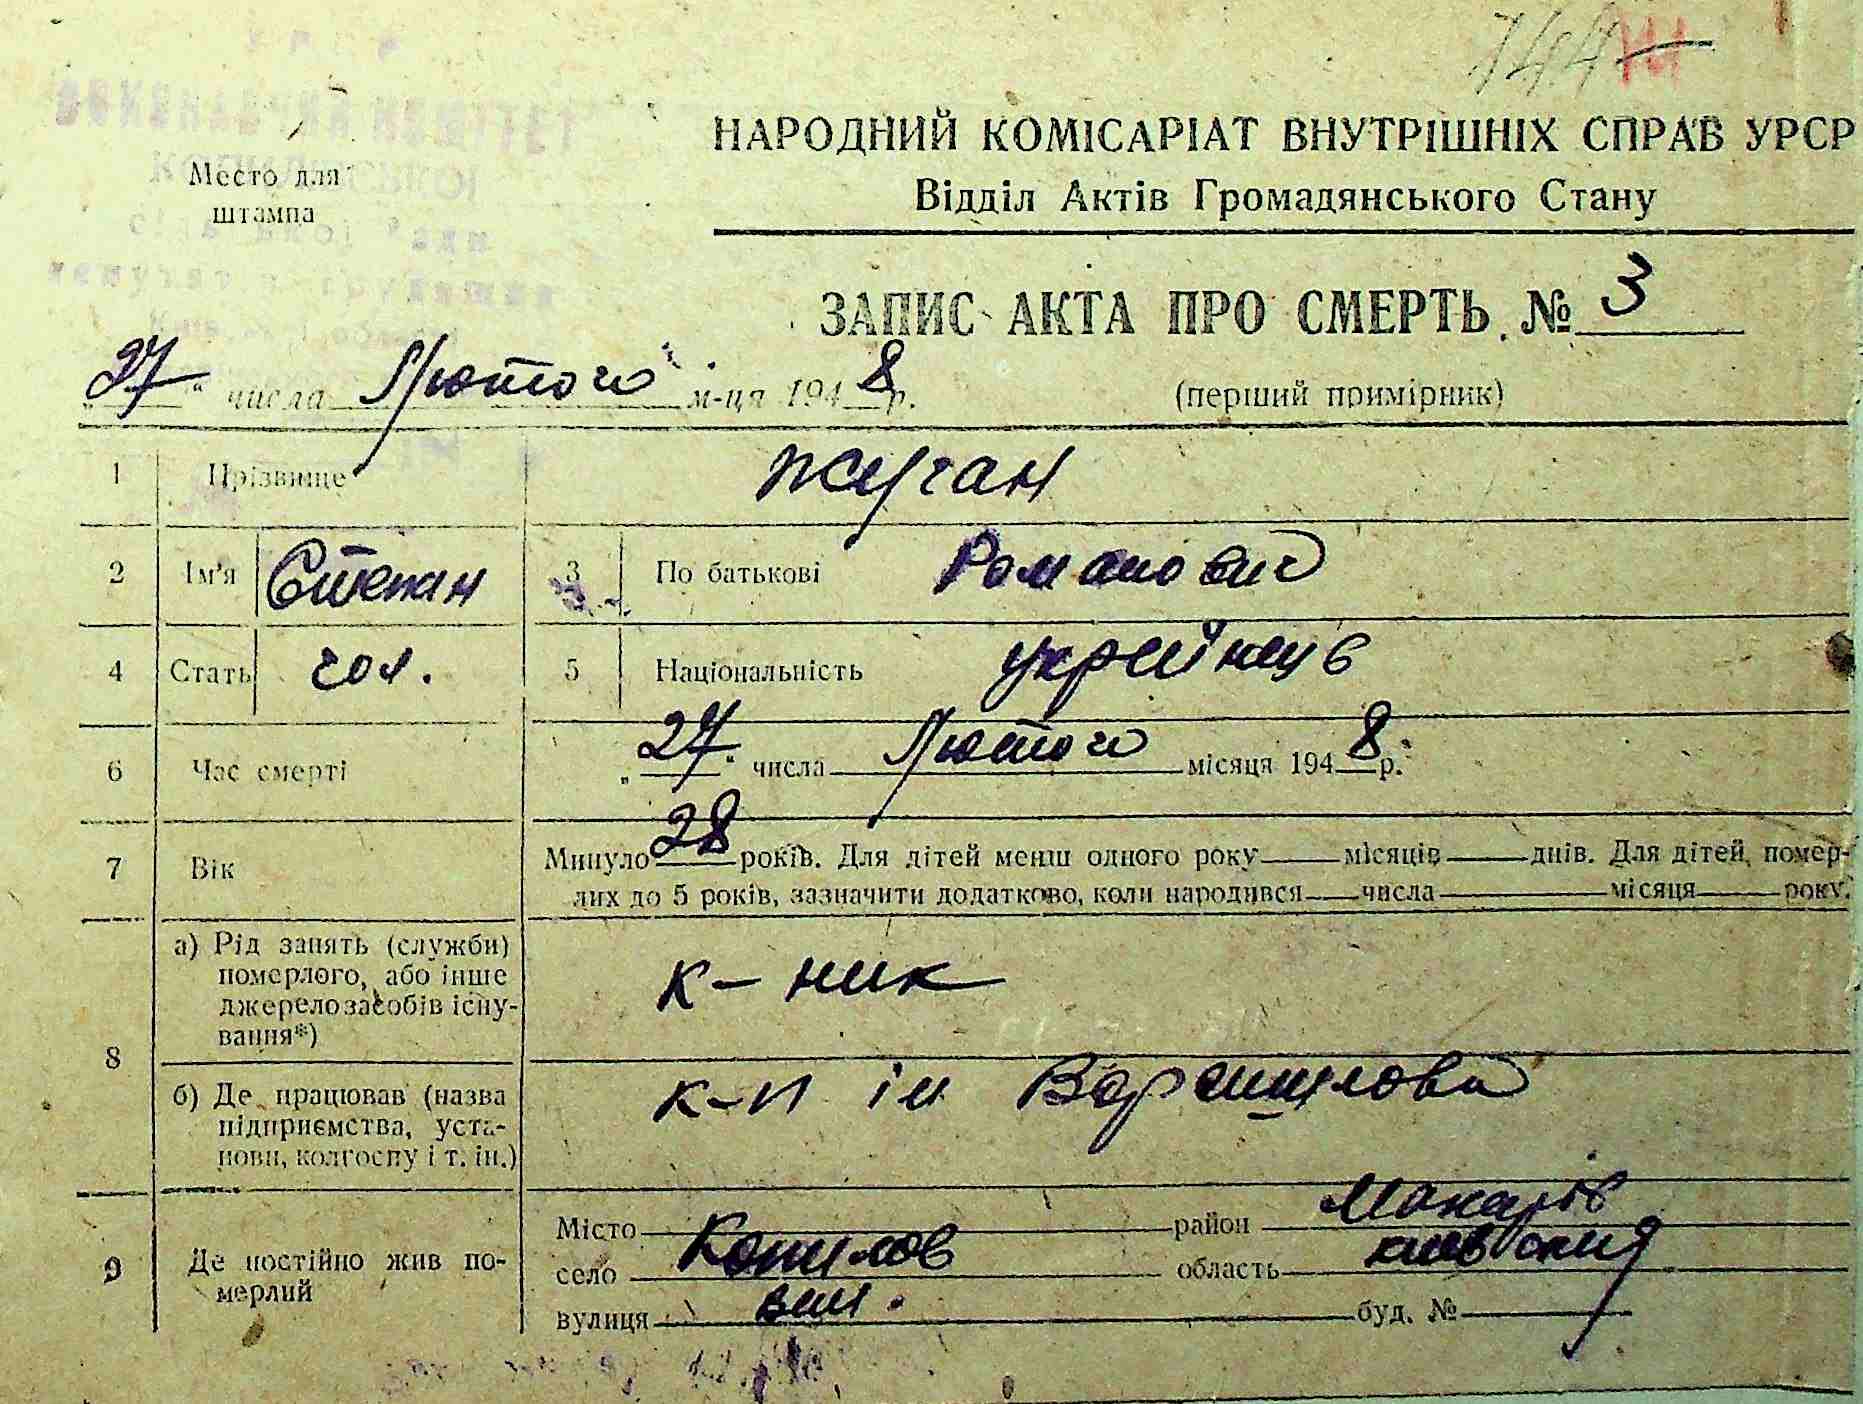 144 141
ВИКОНАВЧИЙ КОМІТЕТ
Место для
штампа
НАРОДНИЙ КОМІСАРІАТ ВНУТРІШНІХ СПРАВ УРСР
Відділ Актів Громадянського Стану
ЗАПИС АКТА ПРО СМЕРТЬ № 3
„27“ числа Лютого м-ця 1948 р.
(перший примірник)
1 Прізвище Жуган
2 Ім'я Степан 3 По батькові Романович
4 Стать чол. 5 Національність українець
6 Час смерті „27“ числа Лютого місяця 1948 р.
7 Вік Минуло 28 років. Для дітей менш одного року місяців днів. Для дітей, помер-
лих до 5 років, зазначити додатково, коли народився числа місяця року.
8 а) Рід занять (служби)
померлого, або інше
джерело засобів існу-
вання*)
к-ник
б) Де працював (назва
підприємства, уста-
нови, колгоспу і т. ін.)
к-п ім Ворошилова
9 Де постійно жив по-
мерлий
Місто район Макарів
село Копилов область киевский
вулиця буд. №